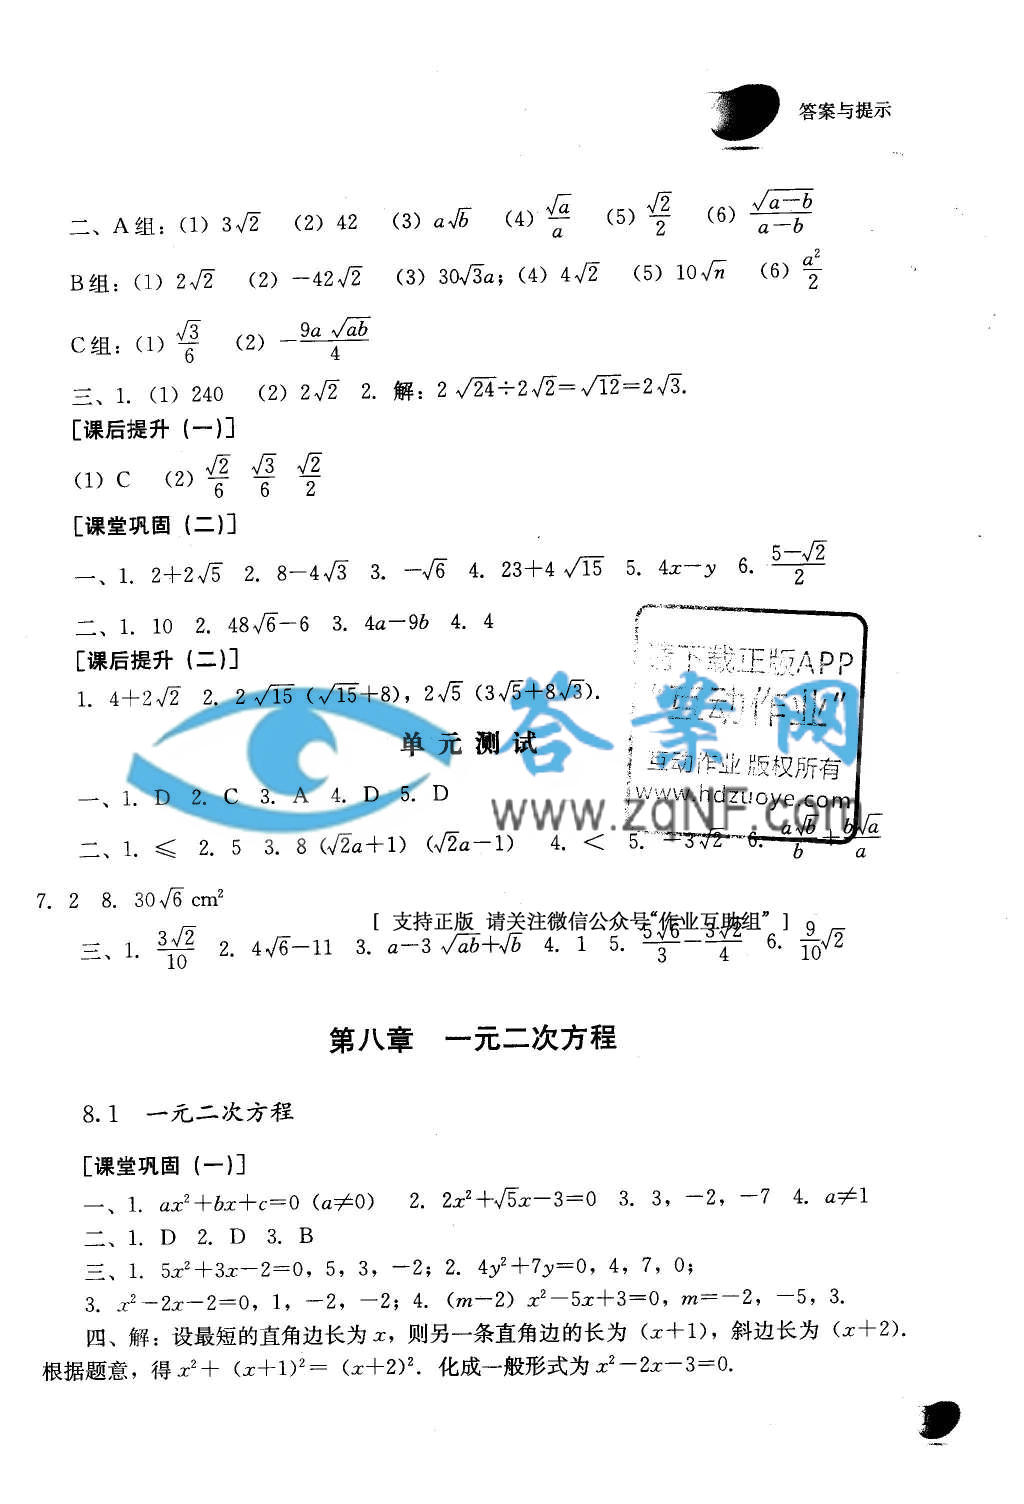 答案与提示
二、A组：(1) 3√2 (2) 42 (3) a√b (4) √a/a (5) √2/2 (6) √(a−b)/(a−b)
B组：(1) 2√2 (2) −42√2 (3) 30√3a；(4) 4√2 (5) 10√n (6) a²/2
C组：(1) √3/6 (2) −9a√(ab)/4
三、1. (1) 240 (2) 2√2 2. 解：2√24÷2√2=√12=2√3.
[课后提升 (一)]
(1) C (2) √2/6 √3/6 √2/2
[课堂巩固 (二)]
一、1. 2+2√5 2. 8−4√3 3. −√6 4. 23+4√15 5. 4x−y 6. (5−√2)/2
二、1. 10 2. 48√6−6 3. 4a−9b 4. 4
[课后提升 (二)]
1. 4+2√2 2. 2√15 (√15+8)，2√5 (3√5+8√3).
下载正版APP
"互动作业"
互动作业 版权所有
www.hdzuoye.com
答案网
www.zqNF.com
单元测试
一、1. D 2. C 3. A 4. D 5. D
二、1. ≤ 2. 5 3. 8 (√2a+1) (√2a−1) 4. < 5. −3√2 6. a√b/b + b√a/a
7. 2 8. 30√6 cm²
[ 支持正版 请关注微信公众号"作业互助组" ]
三、1. 3√2/10 2. 4√6−11 3. a−3√(ab)+√b 4. 1 5. 5√6/3 − 3√2/4 6. 9/10√2
第八章 一元二次方程
8.1 一元二次方程
[课堂巩固 (一)]
一、1. ax²+bx+c=0 (a≠0) 2. 2x²+√5x−3=0 3. 3，−2，−7 4. a≠1
二、1. D 2. D 3. B
三、1. 5x²+3x−2=0，5，3，−2；2. 4y²+7y=0，4，7，0；
3. x²−2x−2=0，1，−2，−2；4. (m−2) x²−5x+3=0，m=−2，−5，3.
四、解：设最短的直角边长为 x，则另一条直角边的长为 (x+1)，斜边长为 (x+2).
根据题意，得 x²+ (x+1)²= (x+2)². 化成一般形式为 x²−2x−3=0.